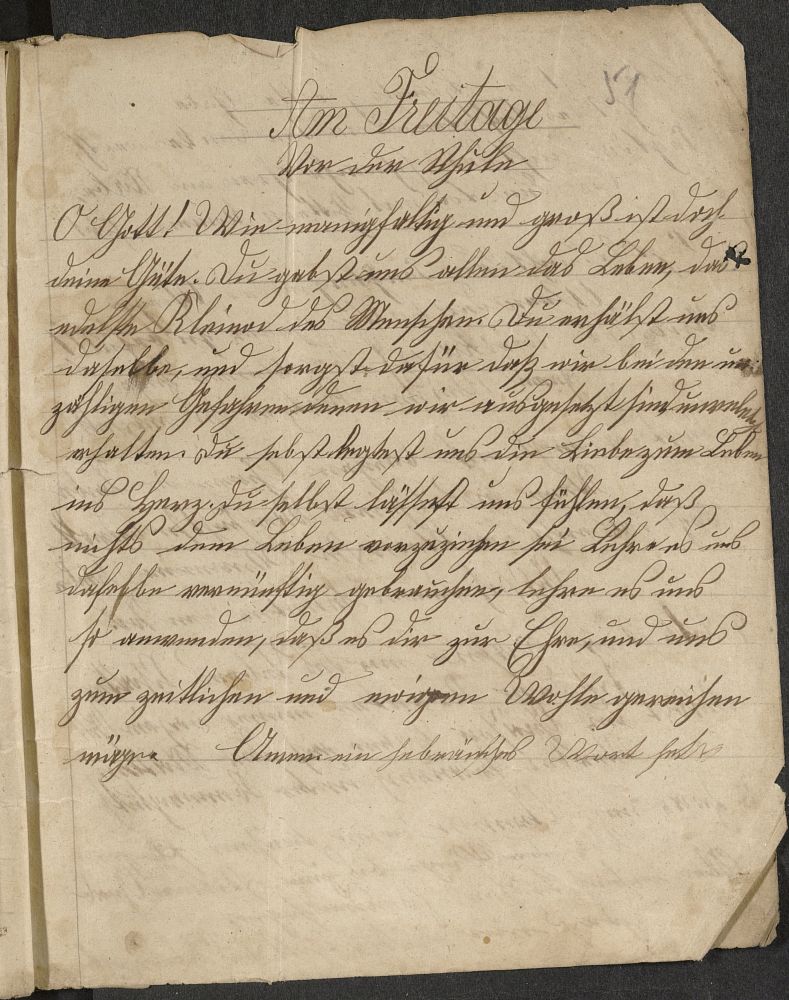 51
Am Freitage
Vor der Schule
O Gott! Wie manigfaltig und groß ist doch
deine Güte. Du gabst uns allen das Leben, das
edelste Kleinod des Menschen. Du erhälst uns
dasselbe, und sorgst dafür daß wir bei den un-
zähligen Gefahren denen wir ausgesetzt sind unverletzt
erhalten. Du selbst legtest uns die Liebe zum Leben
ins Herz. Du selbst lässest uns fühlen, daß
nichts dem Leben vorzuziehen sei Lehre es uns
dasselbe vernünftig gebrauchen, lehre es uns
so anwenden, daß es dir zur Ehre, und uns
zum zeitlichen und ewigen Wohle gereichen
möge. Amen. ein hebräisches Wort